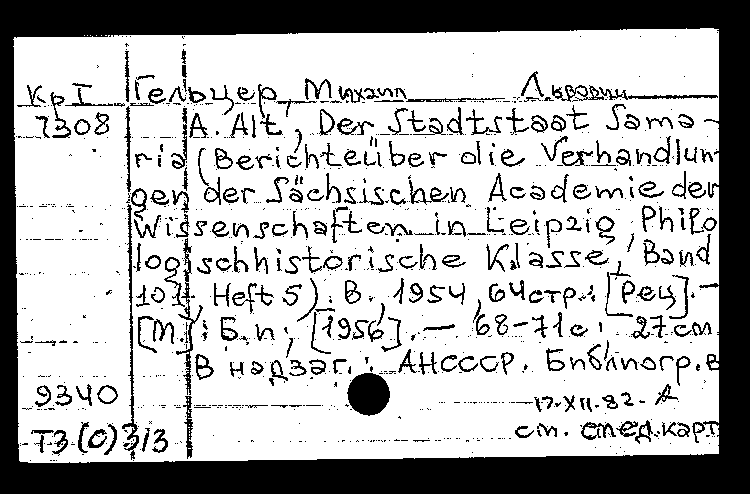 Кр I Гельцер, Михаил Львович
7308 A. Alt, Der Stadtstaat Sama-
ria (Berichte über die Verhandlun
gen der Sächsischen Academie der
Wissenschaften in Leipzig, Philo
logischhistorische Klasse, Band
101, Heft 5). B., 1954, 64 стр.: [Рец]. —
[М.]: Б.и; [1956]. — 68-71с; 27 см
В надзаг.: АНСССР. Библиогр. в
9340 17.XII.82.
T3(0)313 см. след. карт